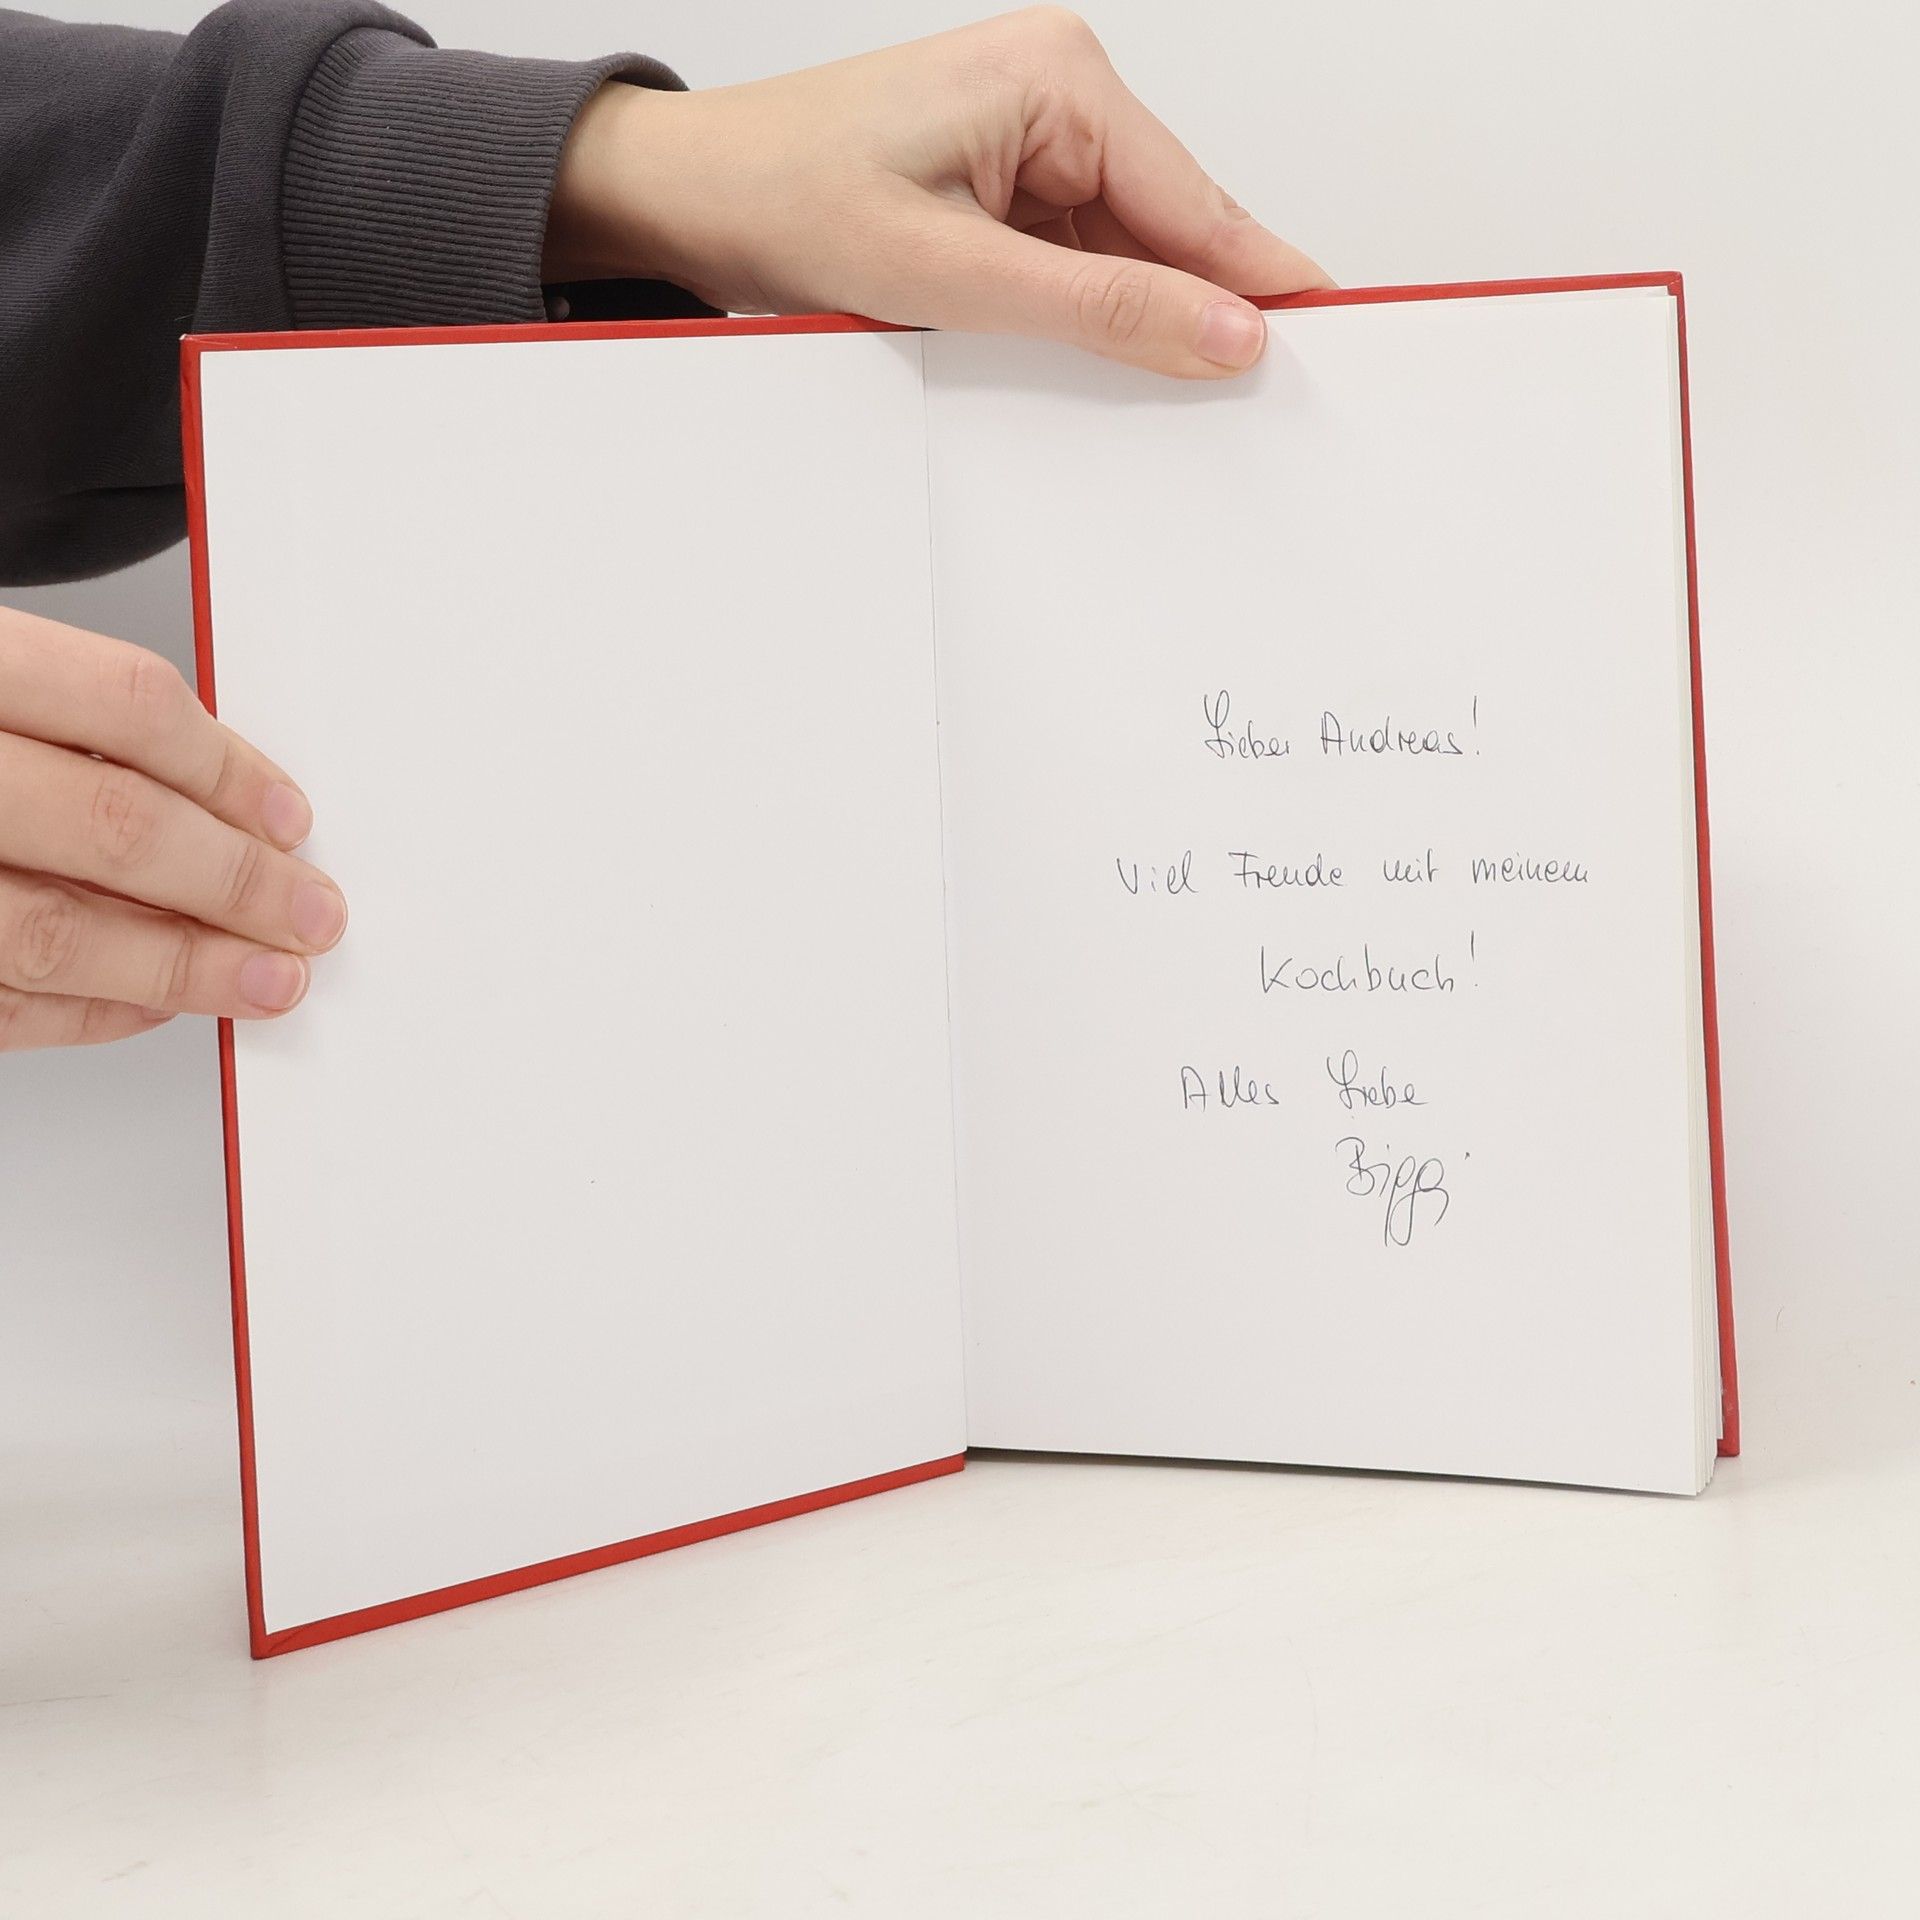 Lieber Andreas!
Viel Freude mit meinem
Kochbuch!
Alles Liebe
Biggi